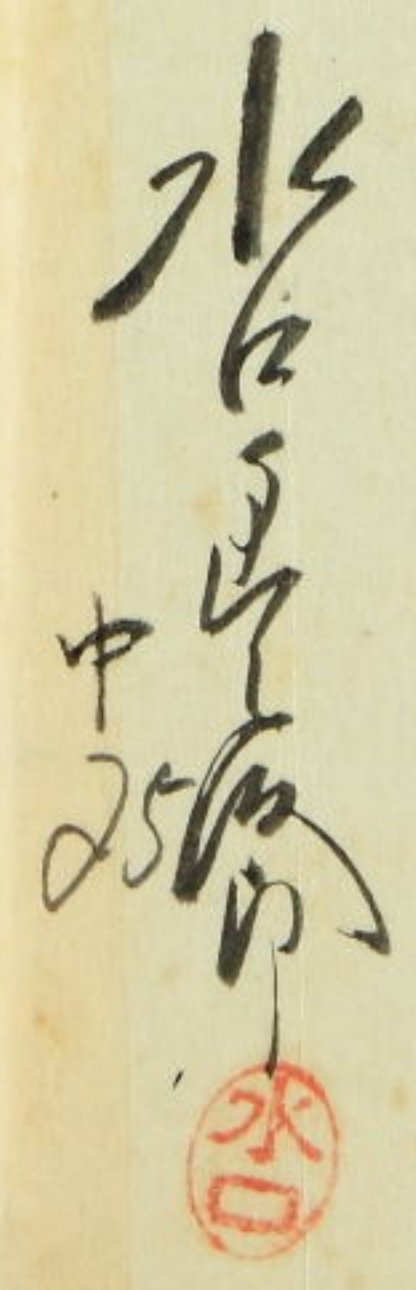 水口
郎
中
25
水口